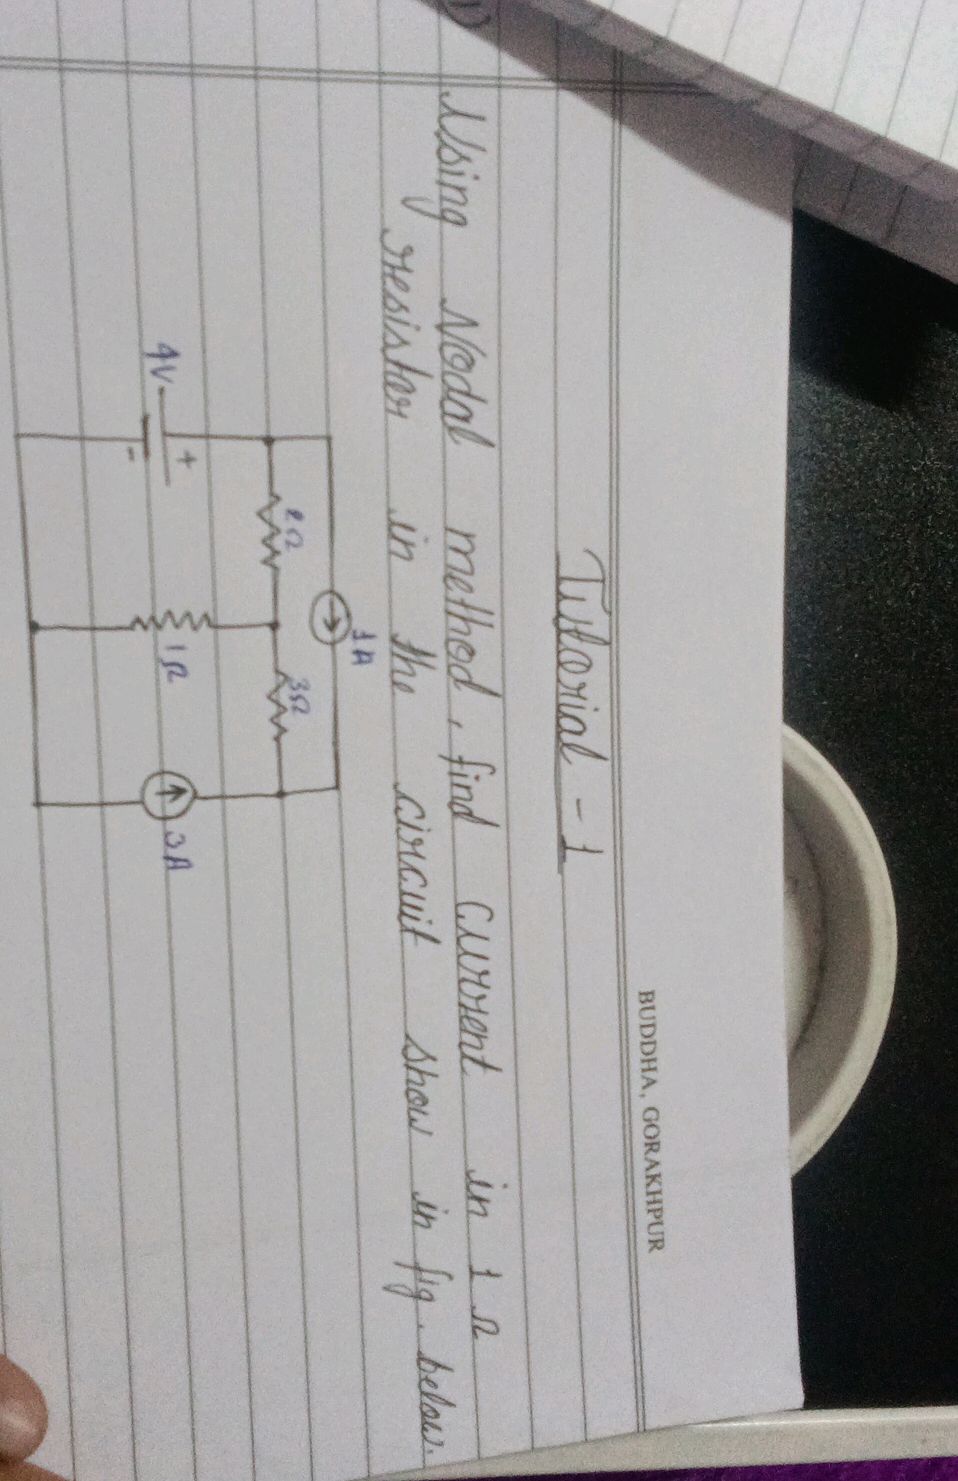 BUDDHA, GORAKHPUR
Tutorial - 1
1)
Using Nodal method, find current in 1 Ω
resistor in the circuit show in fig. below.
1A
2Ω 3Ω
4V + - 1Ω 3A